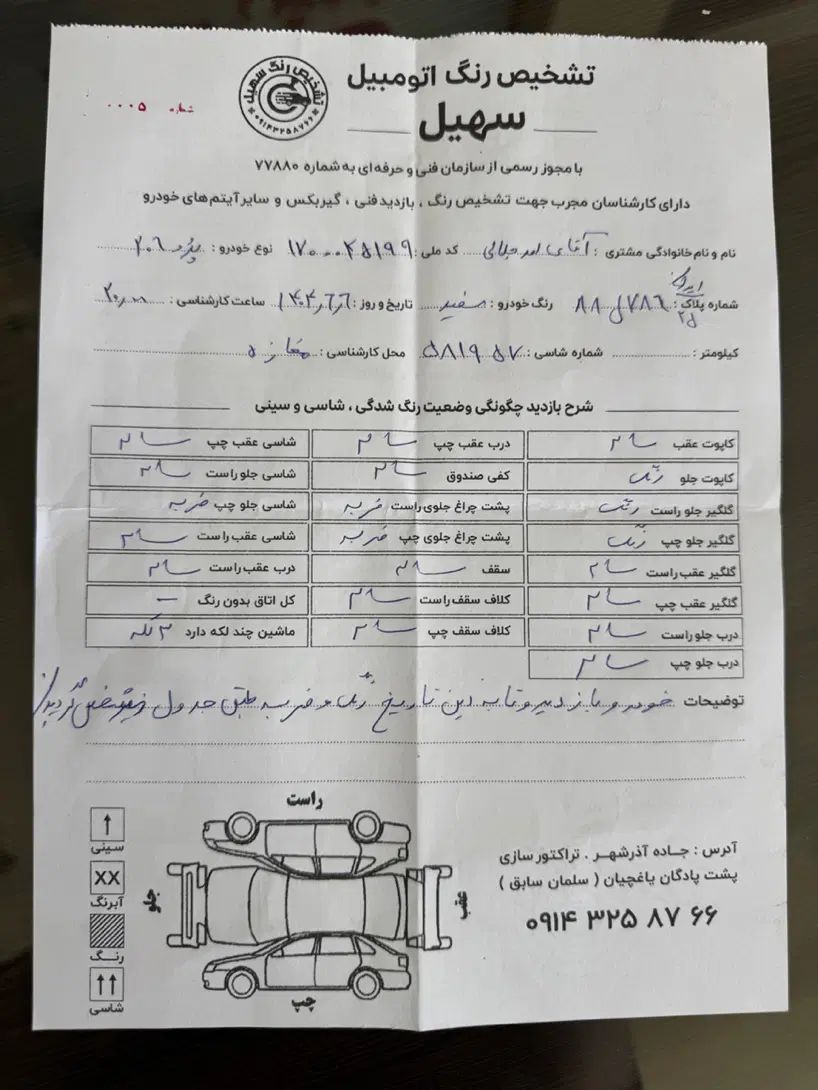 تشخیص رنگ اتومبیل
سهیل
تشخیص رنگ سهیل
۰۹۱۴۳۲۵۸۷۶۶
شماره ۰۰۰۵
با مجوز رسمی از سازمان فنی و حرفه ای به شماره ۷۷۸۸۰
دارای کارشناسان مجرب جهت تشخیص رنگ ، بازدید فنی ، گیربکس و سایر آیتم های خودرو
نام و نام خانوادگی مشتری : آقای کد ملی : نوع خودرو : پژو ۲۰۶
شماره پلاک : ایران ۲۵ ۸۸ ل ۷۸۶ رنگ خودرو : سفید تاریخ و روز : ساعت کارشناسی :
کیلومتر : شماره شاسی : ۵۸۱۹۵۷ محل کارشناسی : مغازه
شرح بازدید چگونگی وضعیت رنگ شدگی ، شاسی و سینی
کاپوت عقب سالم درب عقب چپ سالم شاسی عقب چپ سالم
کاپوت جلو رنگ کفی صندوق سالم شاسی جلو راست سالم
گلگیر جلو راست رنگ پشت چراغ جلوی راست ضربه شاسی جلو چپ ضربه
گلگیر جلو چپ رنگ پشت چراغ جلوی چپ ضربه شاسی عقب راست سالم
گلگیر عقب راست سالم سقف سالم درب عقب راست سالم
گلگیر عقب چپ سالم کلاف سقف راست سالم کل اتاق بدون رنگ —
درب جلو راست سالم کلاف سقف چپ سالم ماشین چند لکه دارد ۳ لکه
درب جلو چپ سالم
توضیحات خودرو بازدید و تا به این تاریخ رنگ و ضربه طبق جدول فوق مشخص گردید
راست
جلو
عقب
چپ
سینی
XX
آبرنگ
رنگ
شاسی
آدرس : جاده آذرشهر . تراکتور سازی
پشت پادگان یاغچیان ( سلمان سابق )
۰۹۱۴ ۳۲۵ ۸۷ ۶۶